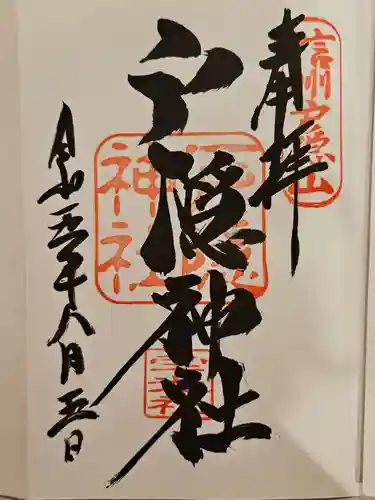 奉拝
信州戸隠山
戸隠神社
戸隠神社
令和五年八月五日